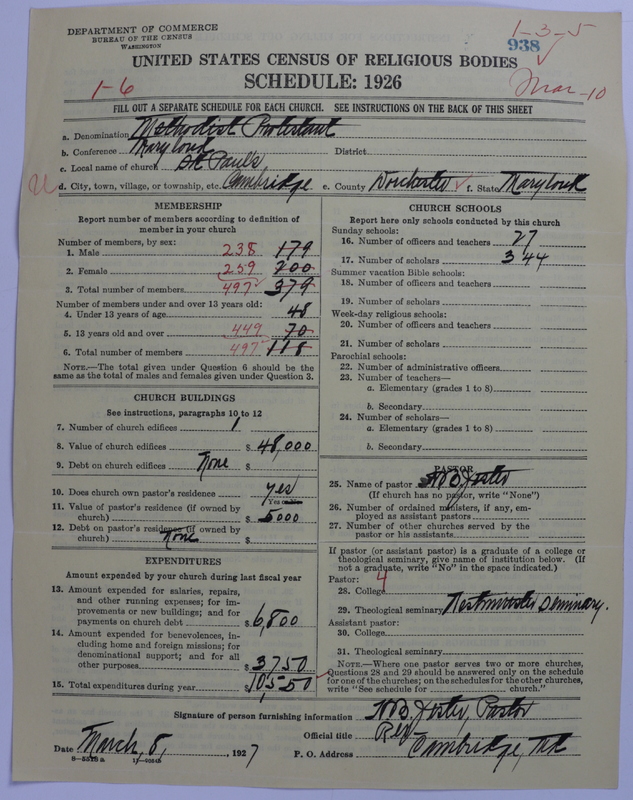 DEPARTMENT OF COMMERCE
BUREAU OF THE CENSUS
WASHINGTON
1-3-5
938
UNITED STATES CENSUS OF RELIGIOUS BODIES
SCHEDULE: 1926
1-6
Mar-10
FILL OUT A SEPARATE SCHEDULE FOR EACH CHURCH. SEE INSTRUCTIONS ON THE BACK OF THIS SHEET
a. Denomination Methodist Protestant
b. Conference Maryland District
c. Local name of church St Paul's
d. City, town, village, or township, etc. Cambridge e. County Dorchester f. State Maryland
MEMBERSHIP
Report number of members according to definition of member in your church
Number of members, by sex:
1. Male 238 179
2. Female 259 200
3. Total number of members 497 379
Number of members under and over 13 years old:
4. Under 13 years of age 48
5. 13 years old and over 449 70
6. Total number of members 497 118
NOTE.—The total given under Question 6 should be the same as the total of males and females given under Question 3.
CHURCH BUILDINGS
See instructions, paragraphs 10 to 12
7. Number of church edifices 1
8. Value of church edifices $ 48,000
9. Debt on church edifices None $
10. Does church own pastor's residence yes
Yes or No
11. Value of pastor's residence (if owned by church) $ 5000
12. Debt on pastor's residence (if owned by church) None $
EXPENDITURES
Amount expended by your church during last fiscal year
13. Amount expended for salaries, repairs, and other running expenses; for improvements or new buildings; and for payments on church debt $ 6,800
14. Amount expended for benevolences, including home and foreign missions; for denominational support; and for all other purposes $ 3750
15. Total expenditures during year $ 10,550
CHURCH SCHOOLS
Report here only schools conducted by this church
Sunday schools:
16. Number of officers and teachers 27
17. Number of scholars 344
Summer vacation Bible schools:
18. Number of officers and teachers
19. Number of scholars
Week-day religious schools:
20. Number of officers and teachers
21. Number of scholars
Parochial schools:
22. Number of administrative officers
23. Number of teachers—
a. Elementary (grades 1 to 8)
b. Secondary
24. Number of scholars—
a. Elementary (grades 1 to 8)
b. Secondary
PASTOR
25. Name of pastor
(If church has no pastor, write "None")
26. Number of ordained ministers, if any, employed as assistant pastors
27. Number of other churches served by the pastor or his assistants
If pastor (or assistant pastor) is a graduate of a college or theological seminary, give name of institution below. (If not a graduate, write "No" in the space indicated.)
Pastor: 4
28. College
29. Theological seminary Westminster Seminary.
Assistant pastor:
30. College
31. Theological seminary
NOTE.—Where one pastor serves two or more churches, Questions 28 and 29 should be answered only on the schedule for one of the churches; on the schedules for the other churches, write "See schedule for church."
Signature of person furnishing information Pastor
Official title Rev
Date March, 8, 1927 P. O. Address Cambridge, Md
8-5518a 11-9054b